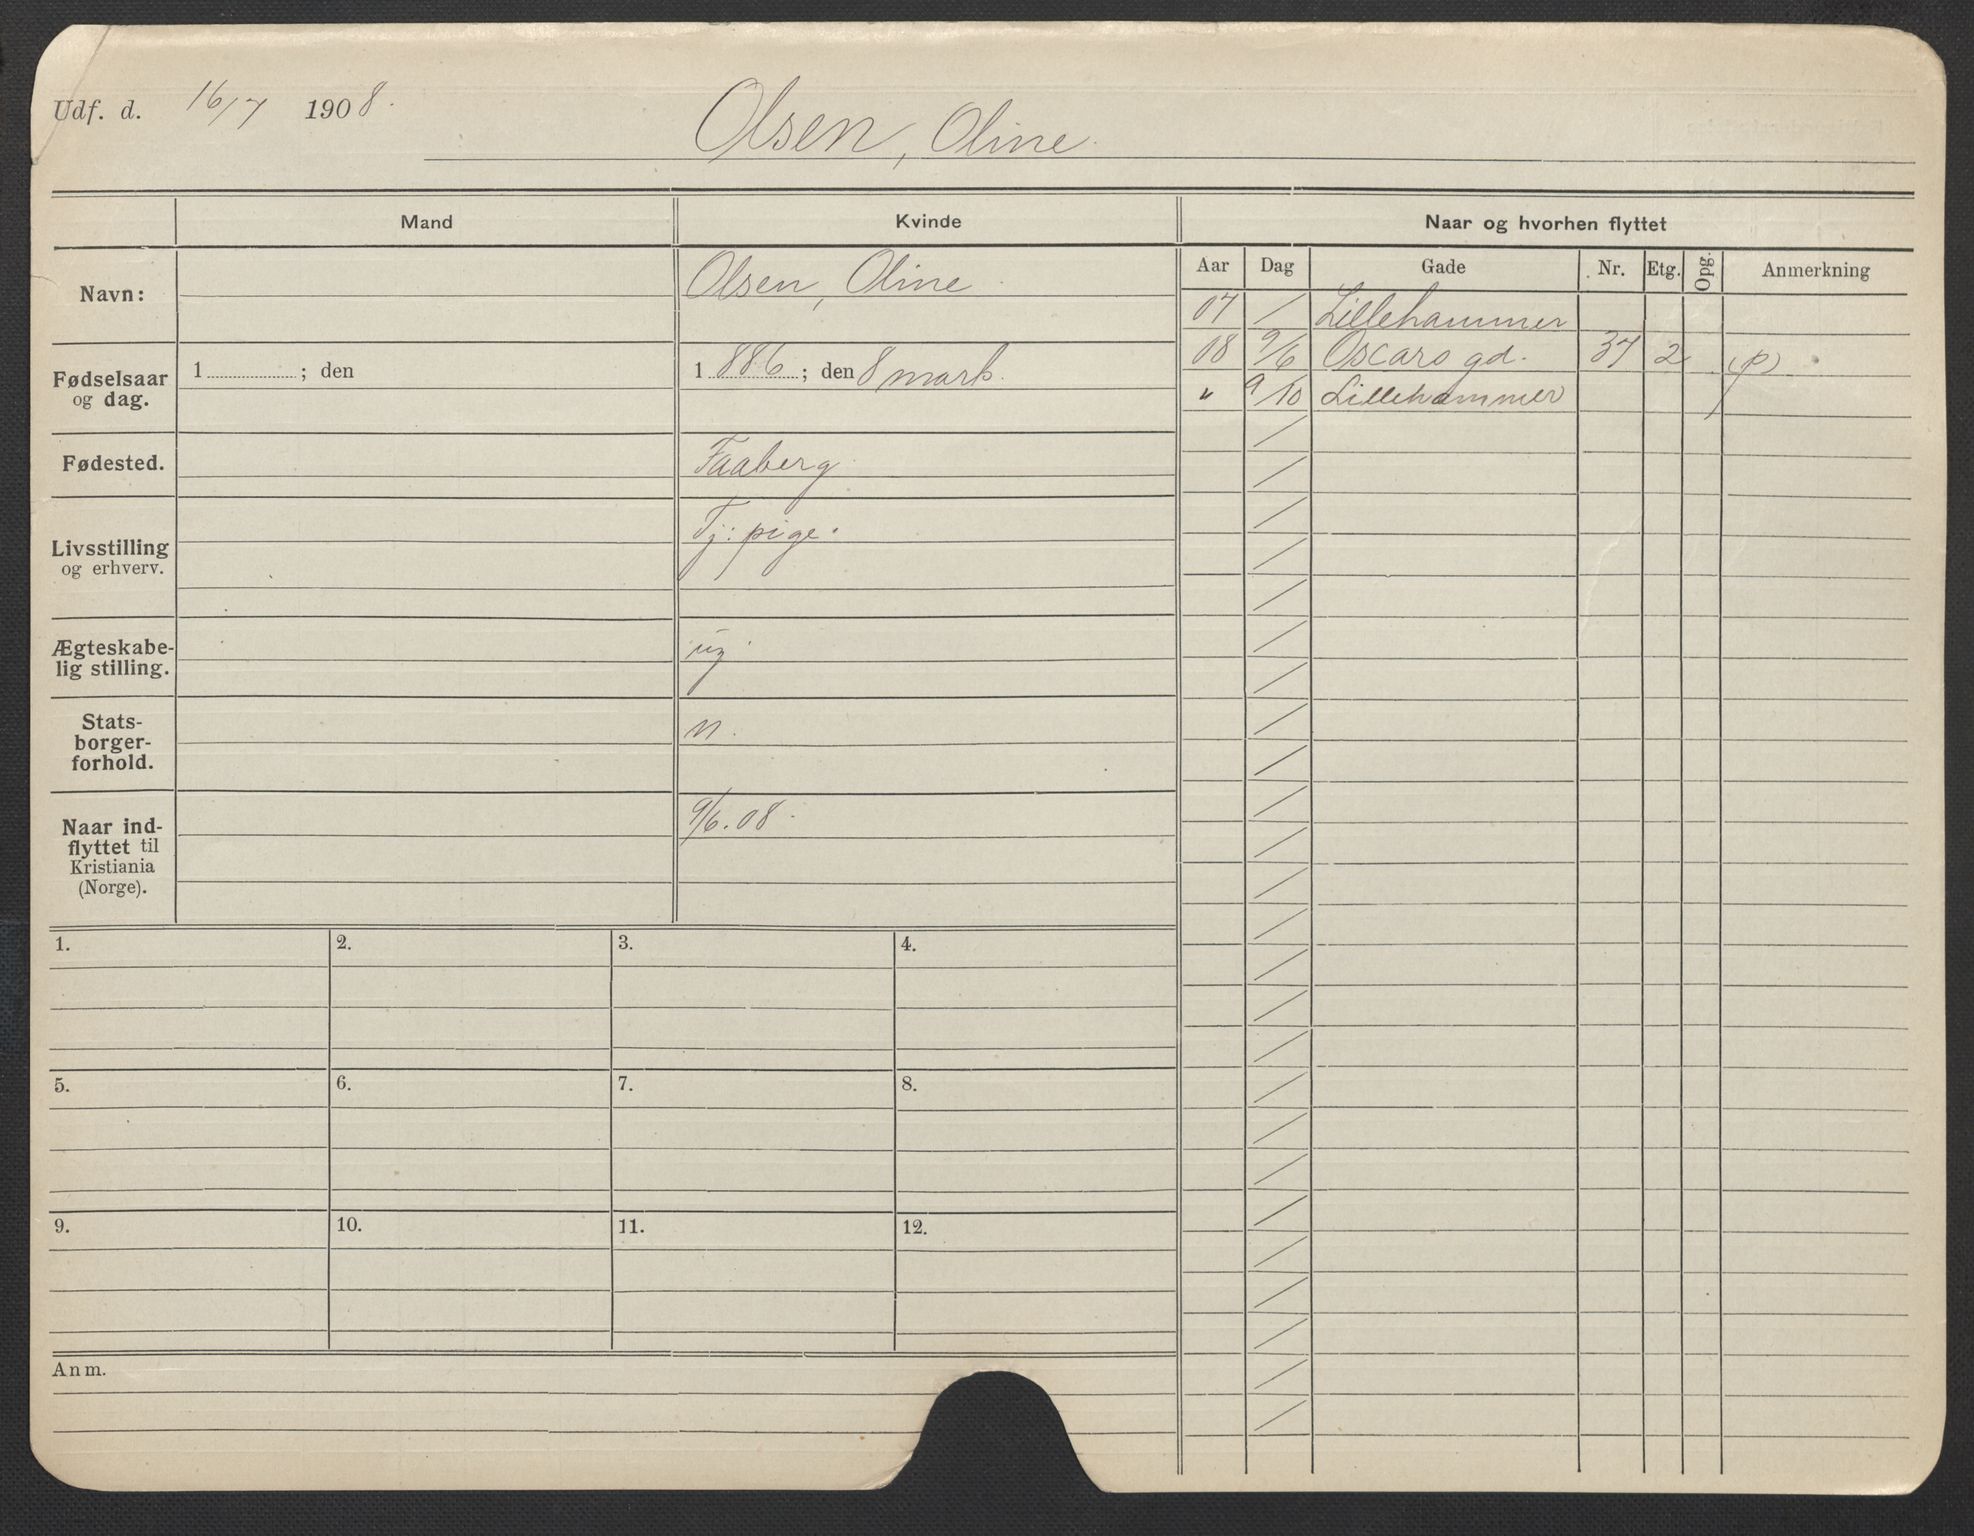 Udf. d. 16/7 1908.
Olsen, Oline
Mand Kvinde Naar og hvorhen flyttet
Navn: Olsen, Oline
Fødselsaar og dag.
1 ; den
1886 ; den 8 marts.
Fødested. Faaberg
Livsstilling og erhverv. Tj: pige.
Ægteskabe-
lig stilling. ug
Stats-
borger-
forhold. n.
Naar ind-
flyttet til
Kristiania
(Norge). 9/6.08.
Aar Dag Gade Nr. Etg. Opg. Anmerkning
07 / Lillehammer
08 9/6 Oscars gd. 37 2 (p)
" 9/10 Lillehammer
1. 2. 3. 4.
5. 6. 7. 8.
9. 10. 11. 12.
Anm.